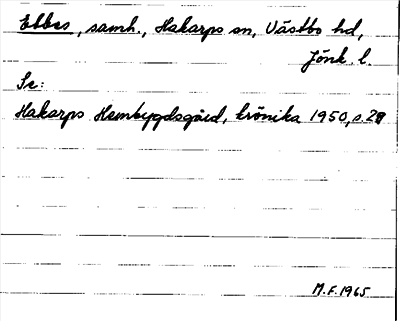 Ebbes, samh., Hakarps sn, Västbo hd,
Jönk. l.
Se:
Hakarps Hembygdsgård, krönika 1950, s. 29
M.F. 1965